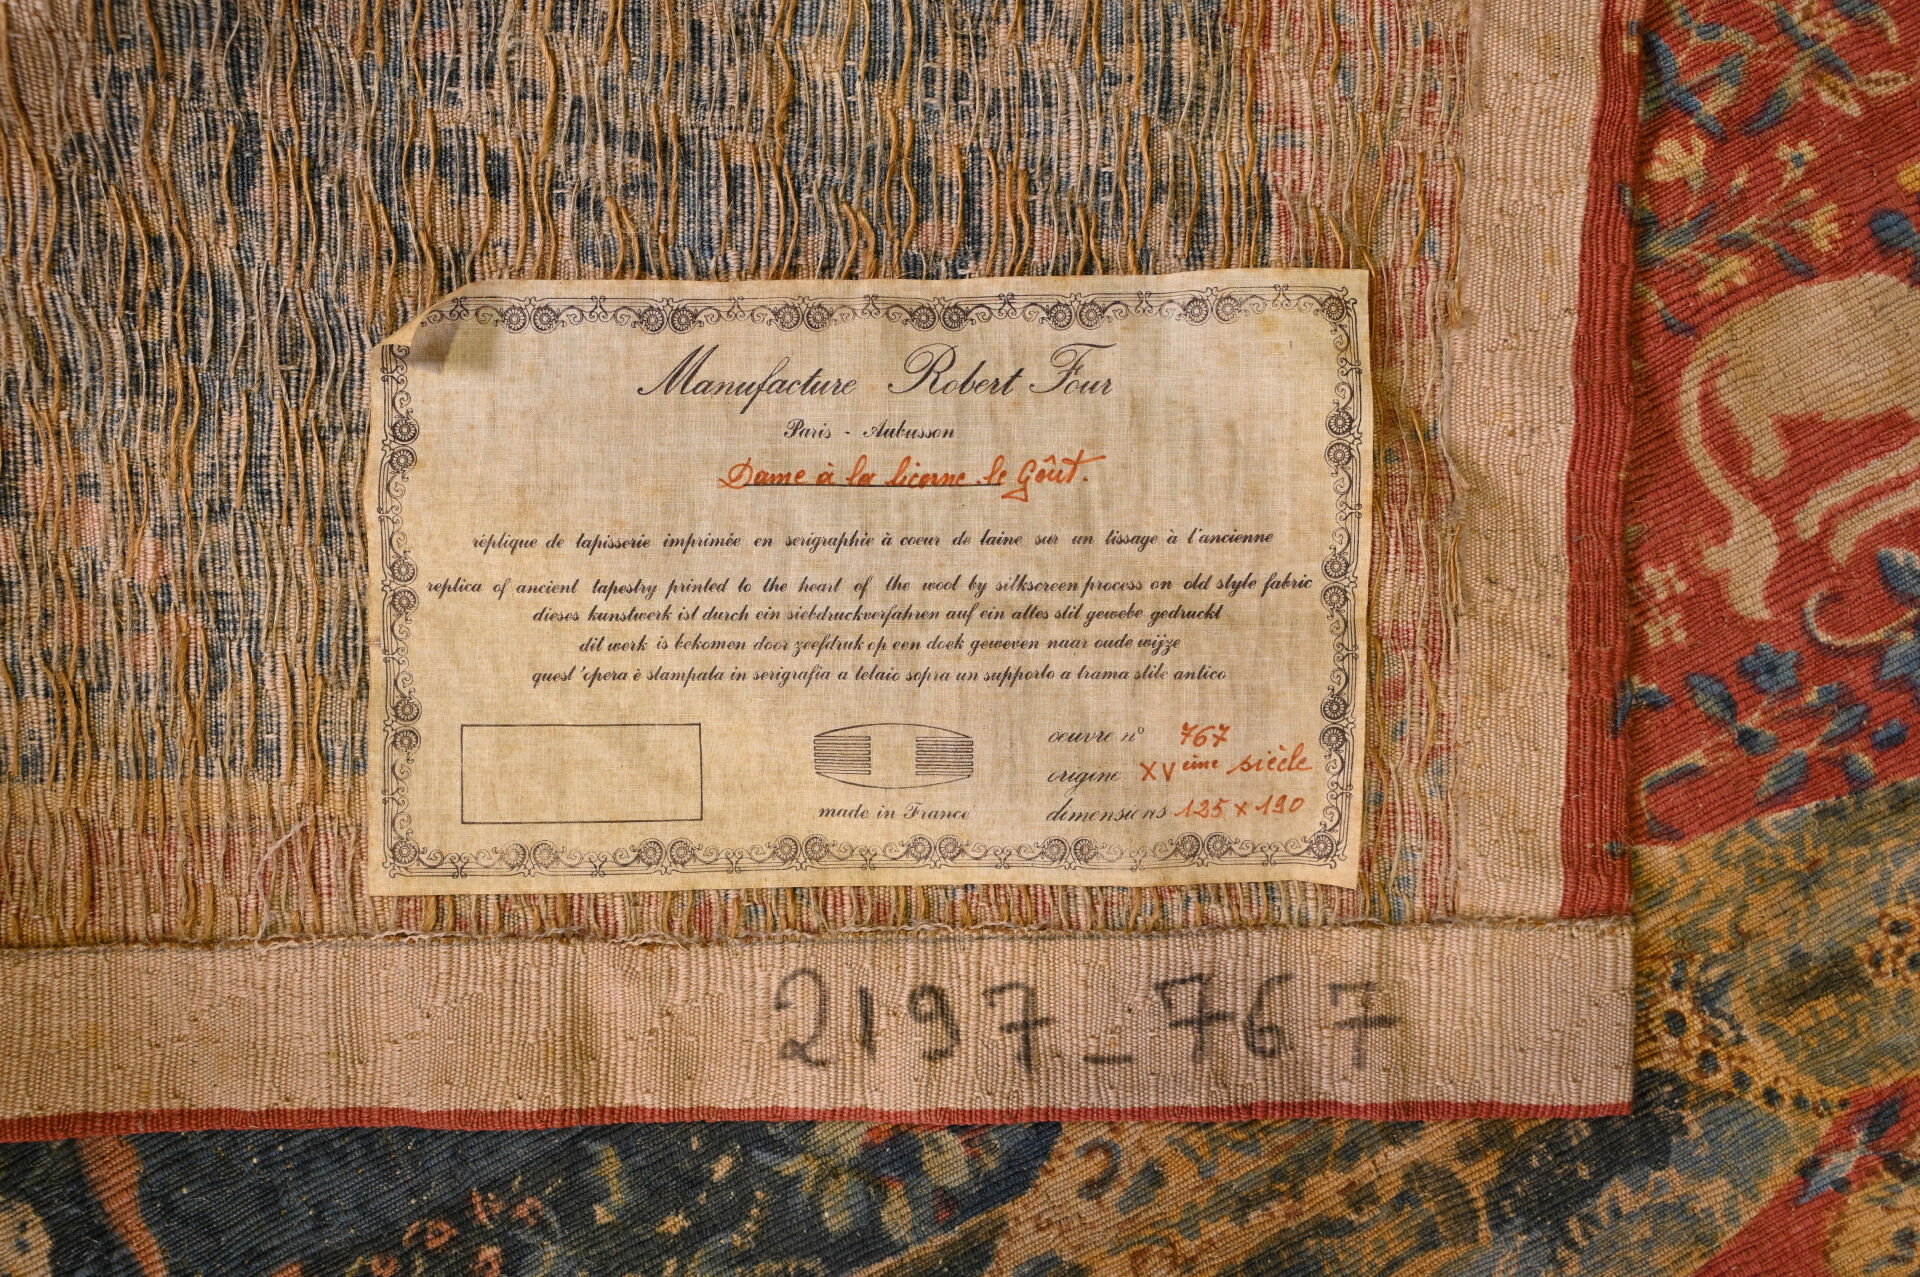 Manufacture Robert Four
Paris - Aubusson
Dame à la licorne le Goût.
réplique de tapisserie imprimée en serigraphie à coeur de laine sur un tissage à l'ancienne
replica of ancient tapestry printed to the heart of the wool by silkscreen process on old style fabric
dieses kunstwerk ist durch ein siebdruckverfahren auf ein altes stil gewebe gedruckt
dit werk is bekomen door zeefdruk op een doek geweven naar oude wijze
quest'opera è stampata in serigrafia a telaio sopra un supporto a trama stile antico
made in France
oeuvre n° 767
origine XVème siècle
dimensions 125 x 190
2197_767